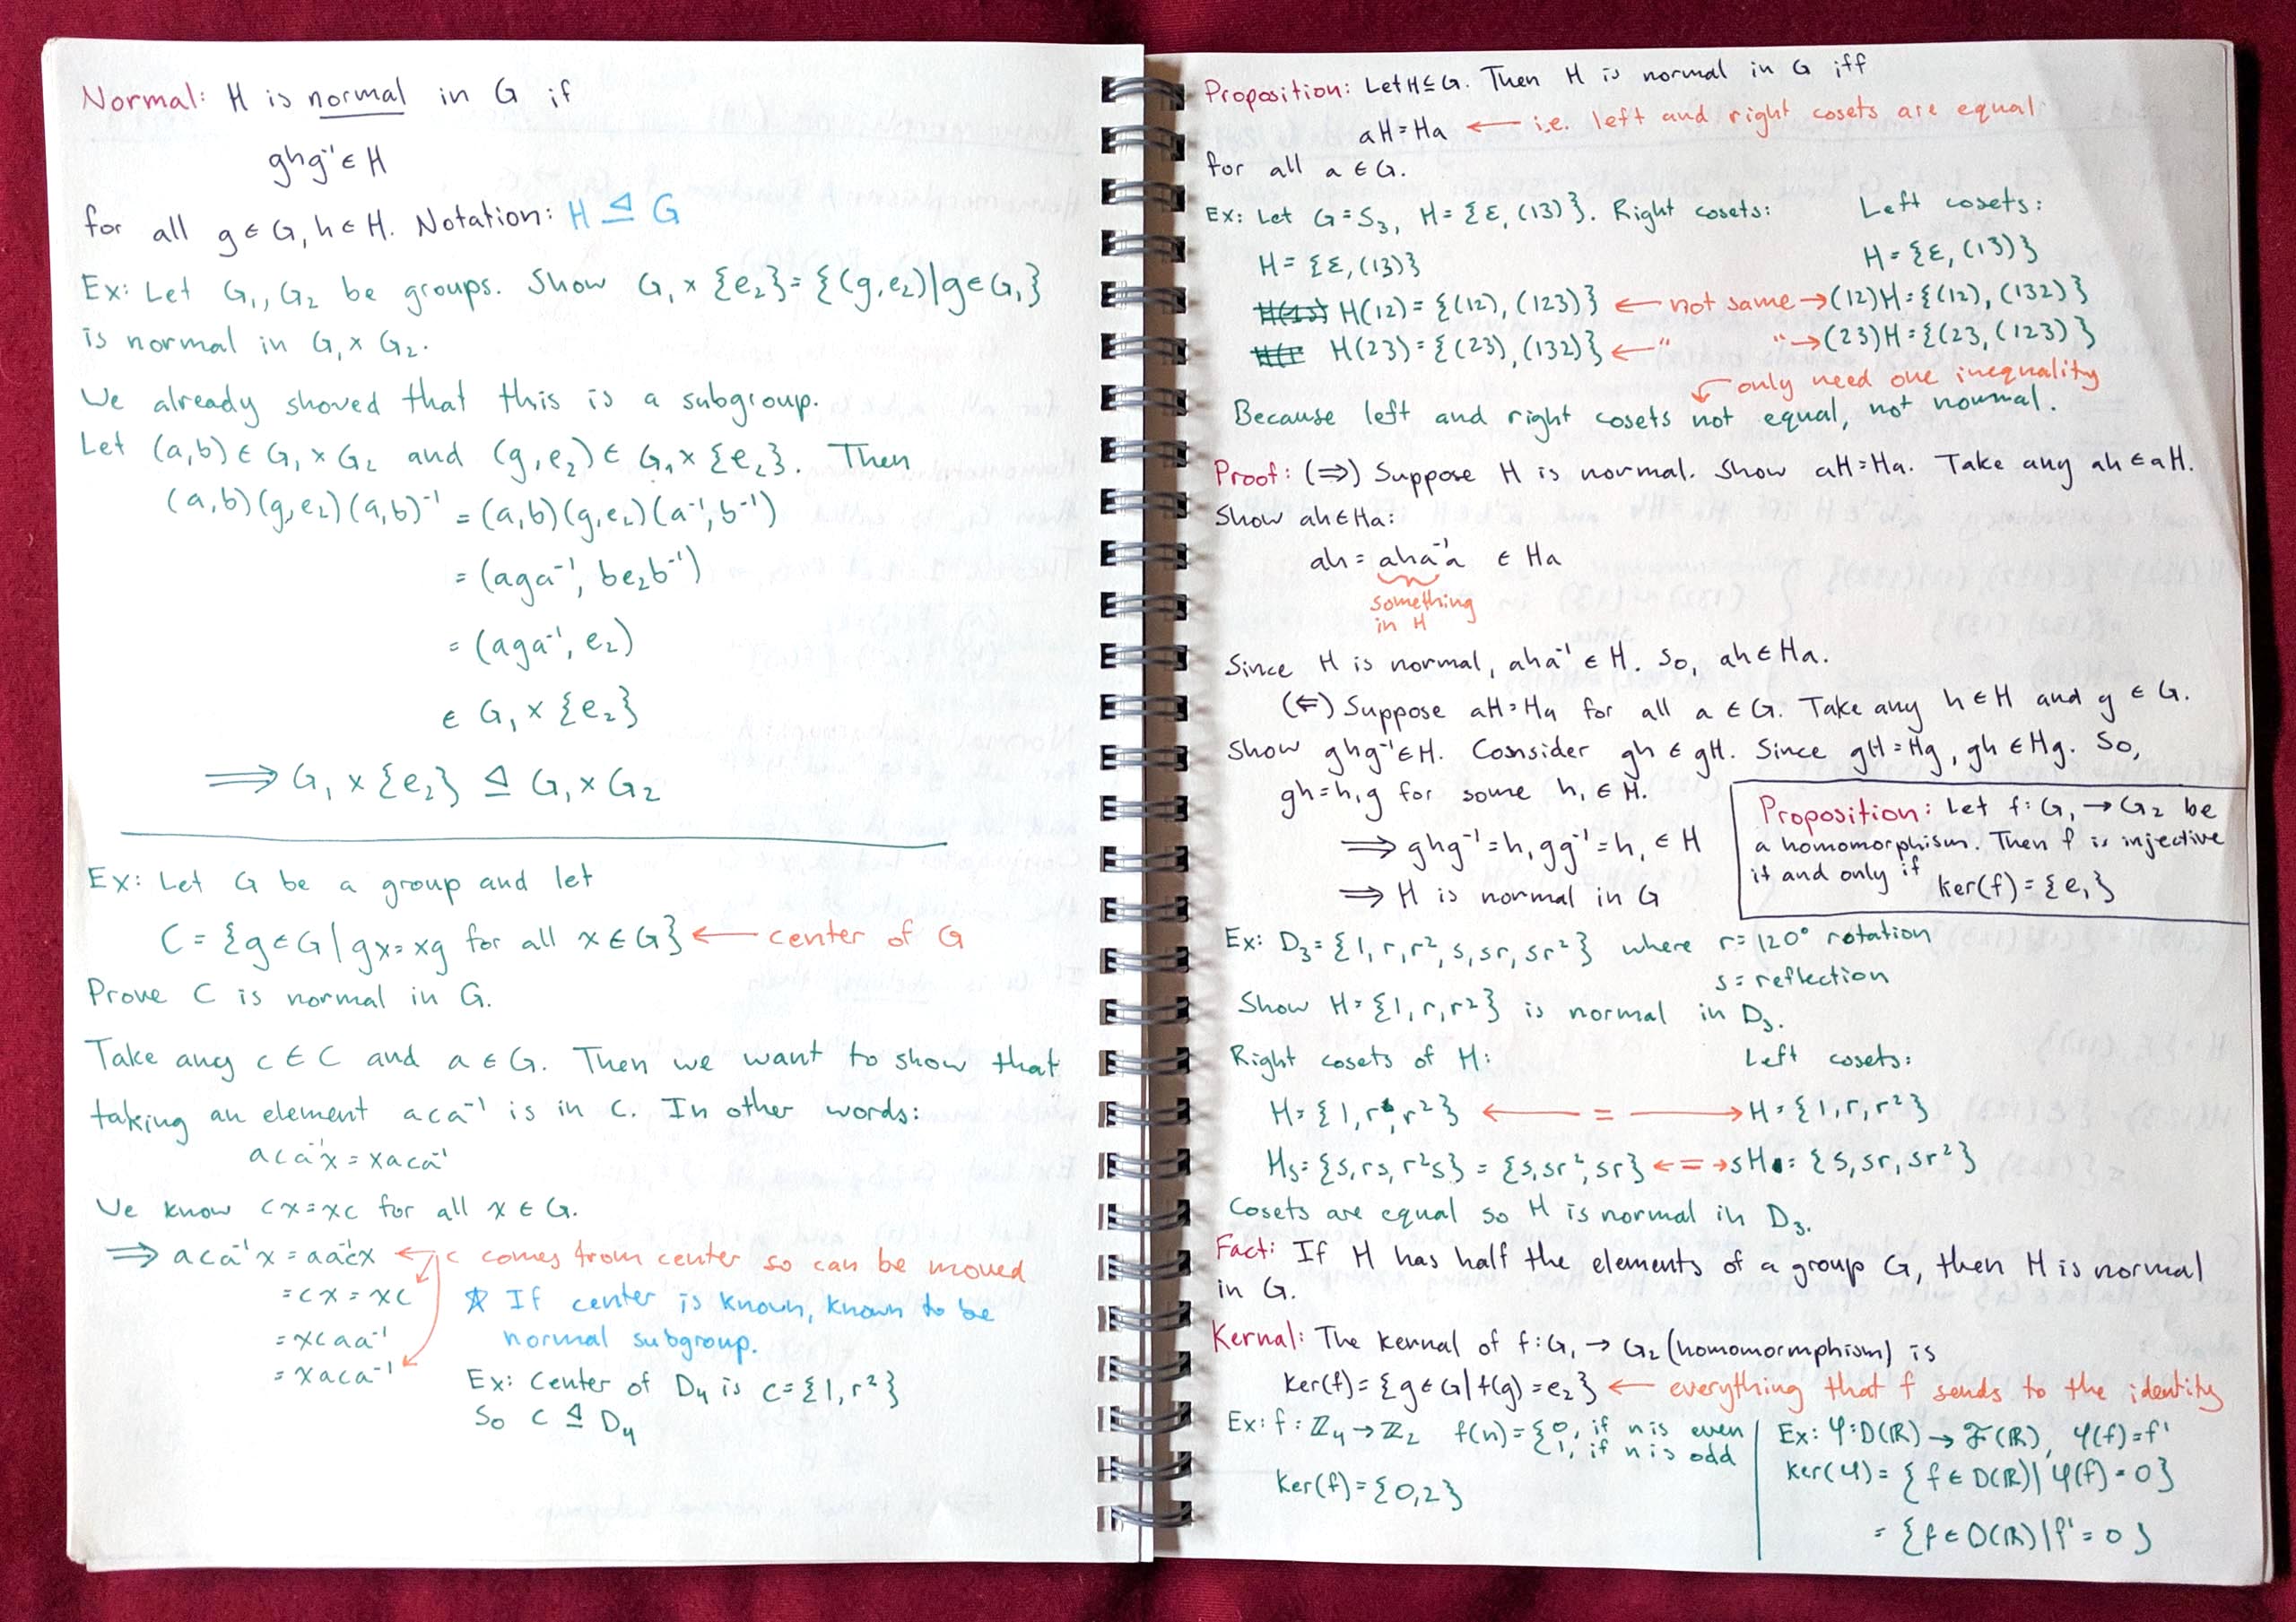 Normal: H is normal in G if
ghg⁻¹ ∈ H
for all g ∈ G, h ∈ H. Notation: H ⊴ G
Ex: Let G₁, G₂ be groups. Show G₁ × {e₂} = {(g,e₂)|g∈G₁}
is normal in G₁ × G₂.
We already shoved that this is a subgroup.
Let (a,b) ∈ G₁ × G₂ and (g,e₂) ∈ G₁ × {e₂}. Then
(a,b)(g,e₂)(a,b)⁻¹ = (a,b)(g,e₂)(a⁻¹,b⁻¹)
= (aga⁻¹, be₂b⁻¹)
= (aga⁻¹, e₂)
∈ G₁ × {e₂}
⟹ G₁ × {e₂} ⊴ G₁ × G₂
Ex: Let G be a group and let
C = {g∈G | gx=xg for all x∈G} ← center of G
Prove C is normal in G.
Take any c ∈ C and a ∈ G. Then we want to show that
taking an element aca⁻¹ is in C. In other words:
aca⁻¹x = xaca⁻¹
We know cx=xc for all x ∈ G.
⟹ aca⁻¹x = aa⁻¹cx ← c comes from center so can be moved
= cx = xc
= xcaa⁻¹
= xaca⁻¹
☆ If center is known, known to be
normal subgroup.
Ex: Center of D₄ is C={1,r²}
So C ⊴ D₄
Proposition: Let H≤G. Then H is normal in G iff
aH=Ha ← i.e. left and right cosets are equal
for all a ∈ G.
Ex: Let G=S₃, H={ε,(13)}. Right cosets: Left cosets:
H={ε,(13)} H={ε,(13)}
H(12)={(12),(123)} ← not same → (12)H={(12),(132)}
H(23)={(23),(132)} ← " " → (23)H={(23,(123)}
only need one inequality
Because left and right cosets not equal, not normal.
Proof: (⇒) Suppose H is normal. Show aH=Ha. Take any ah∈aH.
Show ah∈Ha:
ah = aha⁻¹a ∈ Ha
something
in H
Since H is normal, aha⁻¹ ∈ H. So, ah∈Ha.
(⇐) Suppose aH=Ha for all a ∈ G. Take any h∈H and g ∈ G.
Show ghg⁻¹∈H. Consider gh ∈ gH. Since gH=Hg, gh∈Hg. So,
gh=h₁g for some h₁ ∈ H.
⟹ ghg⁻¹=h₁gg⁻¹=h₁ ∈ H
⟹ H is normal in G
Proposition: Let f:G₁→G₂ be
a homomorphism. Then f is injective
if and only if ker(f)={e₁}
Ex: D₃={1,r,r²,s,sr,sr²} where r=120° rotation
s=reflection
Show H={1,r,r²} is normal in D₃.
Right cosets of H: Left cosets:
H={1,r,r²} ← = → H={1,r,r²}
Hs={s,rs,r²s} = {s,sr²,sr} ← = → sH = {s,sr,sr²}
Cosets are equal so H is normal in D₃.
Fact: If H has half the elements of a group G, then H is normal
in G.
Kernal: The kernal of f:G₁→G₂ (homomormphism) is
ker(f)={g∈G|f(g)=e₂} ← everything that f sends to the identity
Ex: f:ℤ₄→ℤ₂ f(n)={0, if n is even
1, if n is odd
ker(f)={0,2}
Ex: φ:D(ℝ)→ℱ(ℝ), φ(f)=f'
ker(φ)={f∈D(ℝ)|φ(f)=0}
={f∈D(ℝ)|f'=0}